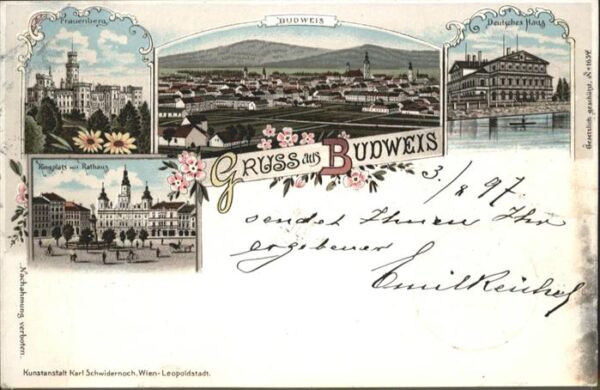 Frauenberg.
BUDWEIS
Deutsches Haus
Ringplatz mit Rathaus
GRUSS aus BUDWEIS
3./8 97
sendet Ihnen Ihr
ergebener
Emil Reichel
Nachahmung verboten.
Gesetzlich geschützt. No 1654.
Kunstanstalt Karl Schwidernoch, Wien-Leopoldstadt.